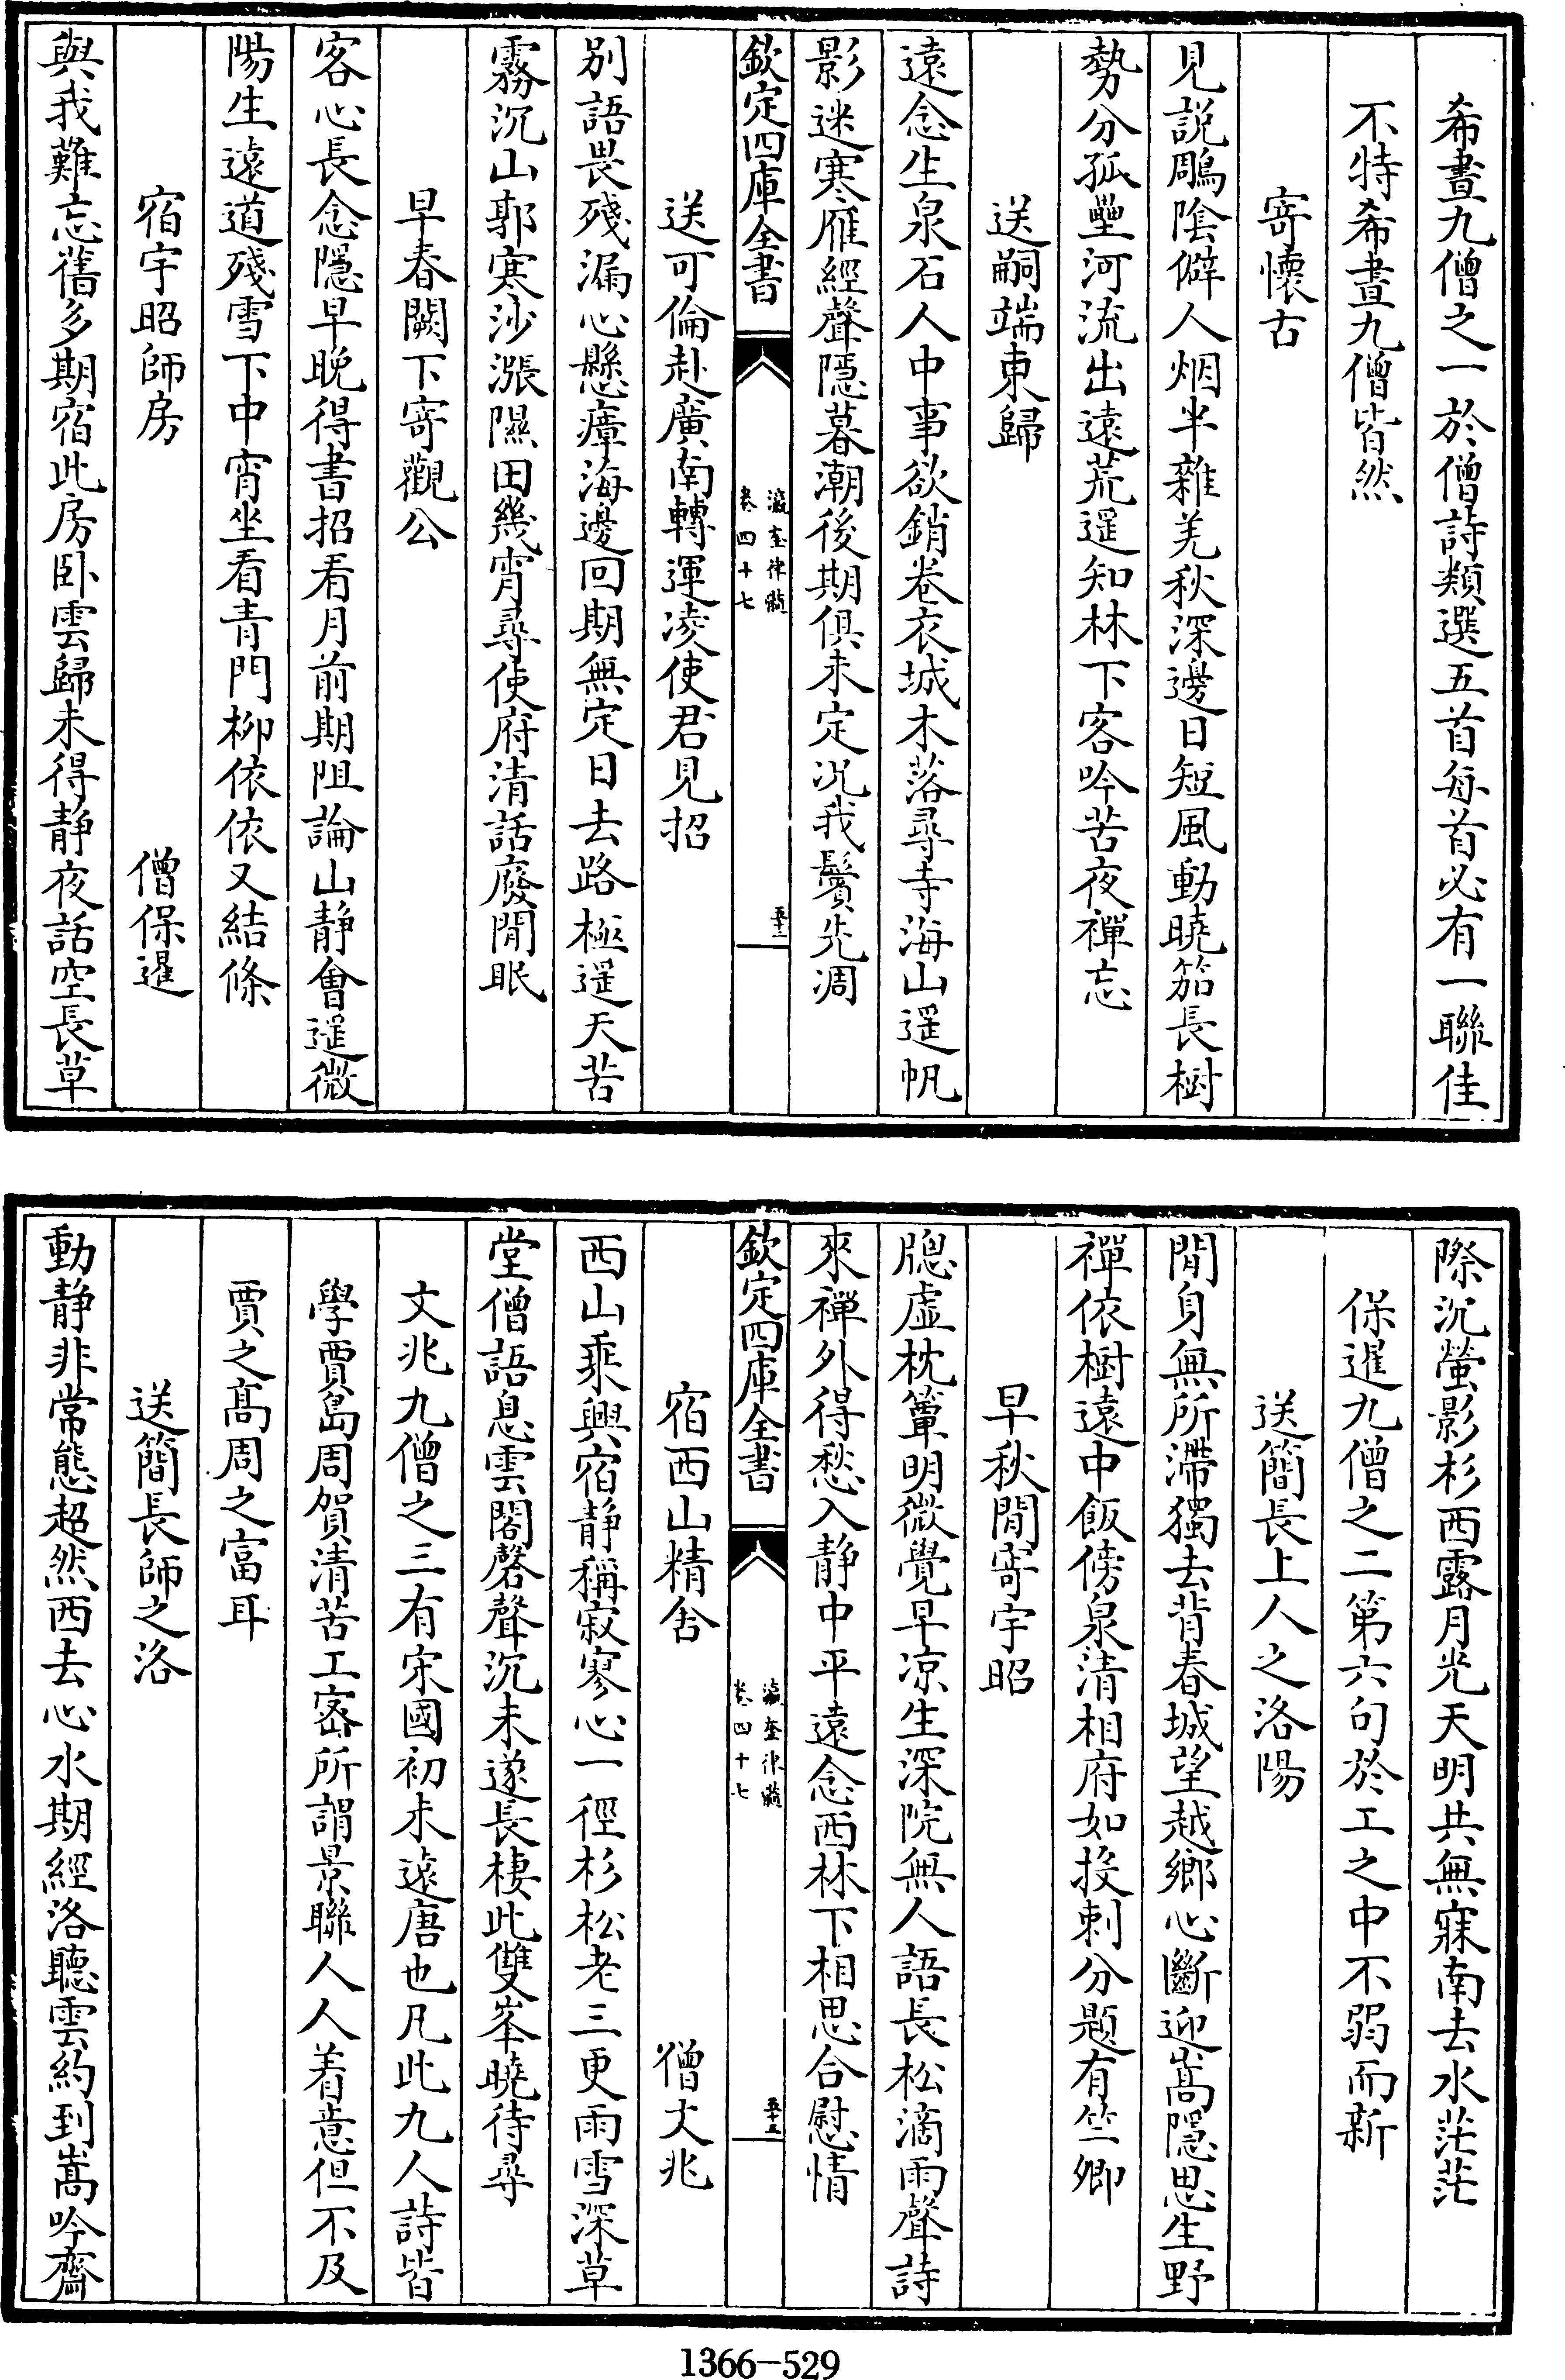 希晝九僧之一於僧詩類選五首每首必有一聯佳
不特希晝九僧皆然
寄懷古
見説鵰隂僻人烟半雜羌秋深邊日短風動曉笳長樹
勢分孤壘河流出遠荒遥知林下客吟苦夜禪忘
送嗣端東歸
逺念生泉石人中事欲銷卷衣城木落尋寺海山遥帆
影迷寒雁經聲隱暮潮後期俱未定况我鬢先凋
欽定四庫全書
瀛奎律髓
卷四十七
五十二
送可倫赴廣南轉運凌使君見招
别語畏殘漏心懸瘴海邊回期無定日去路極遥天苦
霧沉山郭寒沙漲隰田幾宵尋使府清話廢閒眠
早春闕下寄觀公
客心長念隱早晚得書招看月前期阻論山静會遥微
陽生逺道殘雪下中宵坐看青門柳依依又結條
宿宇昭師房
僧保暹
與我難忘舊多期宿此房卧雲歸未得静夜話空長草
際沉螢影杉西露月光天明共無寐南去水茫茫
保暹九僧之二第六句於工之中不弱而新
送簡長上人之洛陽
閒身無所滯獨去背春城望越鄉心斷迎嵩隱思生野
禪依樹遠中飯傍泉清相府如投刺分題有竺卿
早秋閒寄宇昭
牕虚枕簟明微覺早凉生深院無人語長松滴雨聲詩
來禪外得愁入静中平遠念西林下相思合慰情
欽定四庫全書
瀛奎律髓
卷四十七
五十三
宿西山精舍
僧文兆
西山乘興宿静稱寂寥心一徑杉松老三更雨雪深草
堂僧語息雲閣磬聲沉未遂長棲此雙峯曉待尋
文兆九僧之三有宋國初未逺唐也凡此九人詩皆
學賈島周賀清苦工宻所謂景聯人人着意但不及
賈之髙周之富耳
送簡長師之洛
動静非常態超然西去心水期經洛聽雲約到嵩吟齋
1366-529